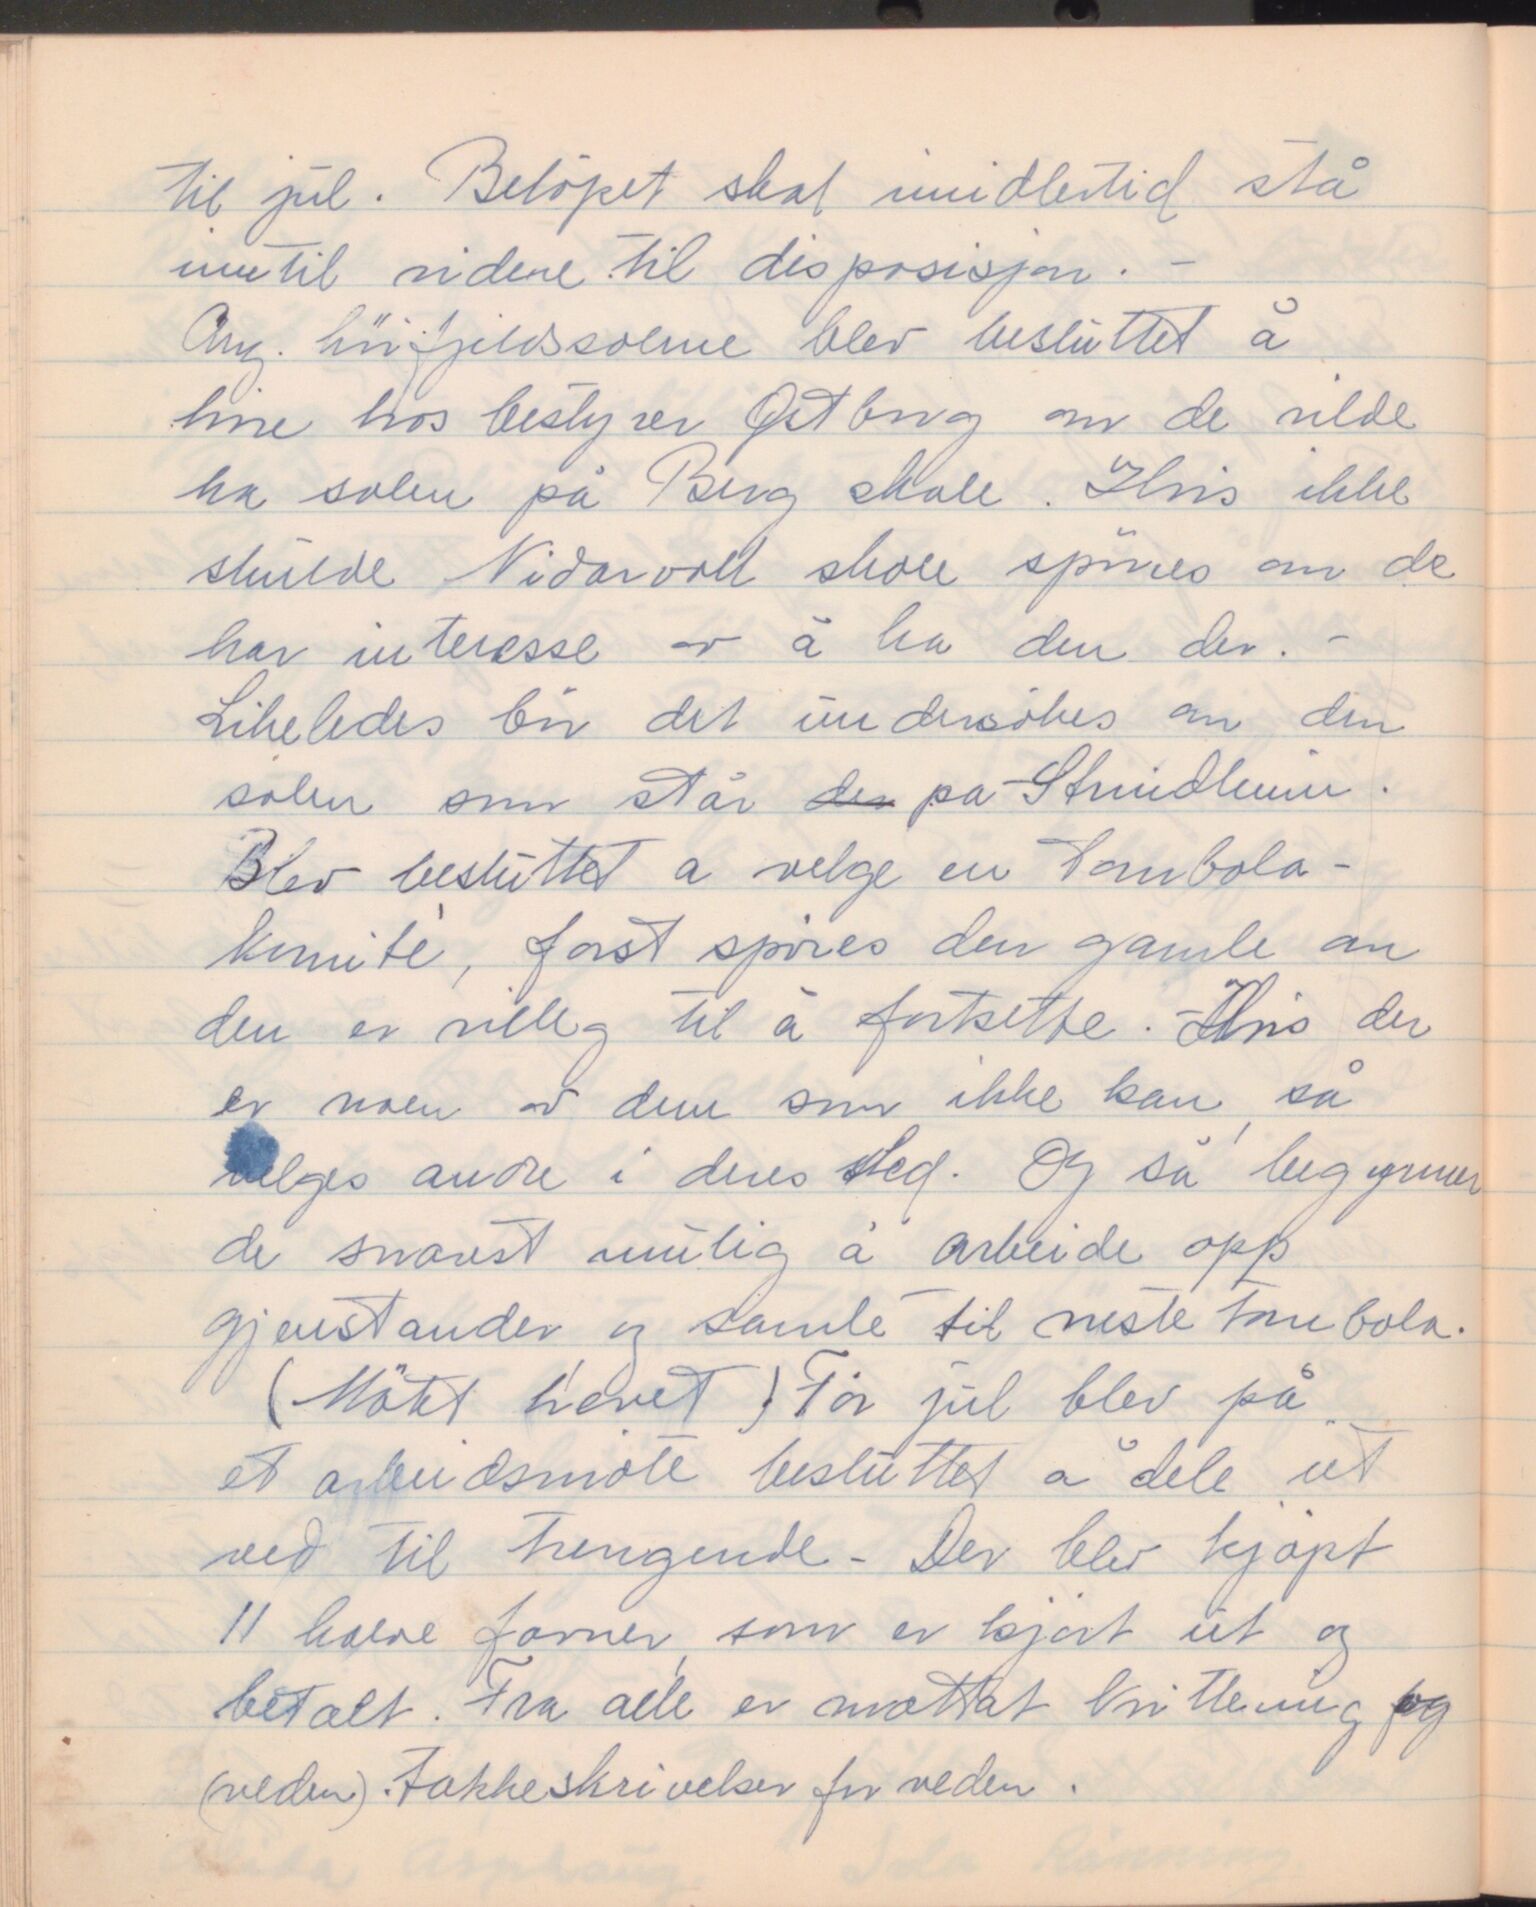 til jul. Beløpet skal imidlertid stå
inntil videre til disposisjon. -
Ang. høifjeldssolene blev besluttet å
høre hos bestyrer Østborg om de vilde
ha solen på Berg skole. Hvis ikke
skulde Nidarvoll skole spørres om de
har interesse av å ha den der. -
Likeledes bør det undersøkes om den
solen som står der på Strindheim.
Blev besluttet a velge en Tombola-
komité, først spørres den gamle om
den er villig til å fortsette. Hvis der
er noen av dem som ikke kan, så
velges andre i deres sted. Og så begynner
de snarest mulig å arbeide opp
gjenstander og samle til neste tombola.
(Møtet hevet) Før jul blev på
et arbeidsmøte besluttet å dele ut
ved til trengende - Der blev kjøpt
11 halve favner, som er kjørt ut og
betalt. Fra alle er mottat kvittering og
(veden). Takkeskrivelser for veden.